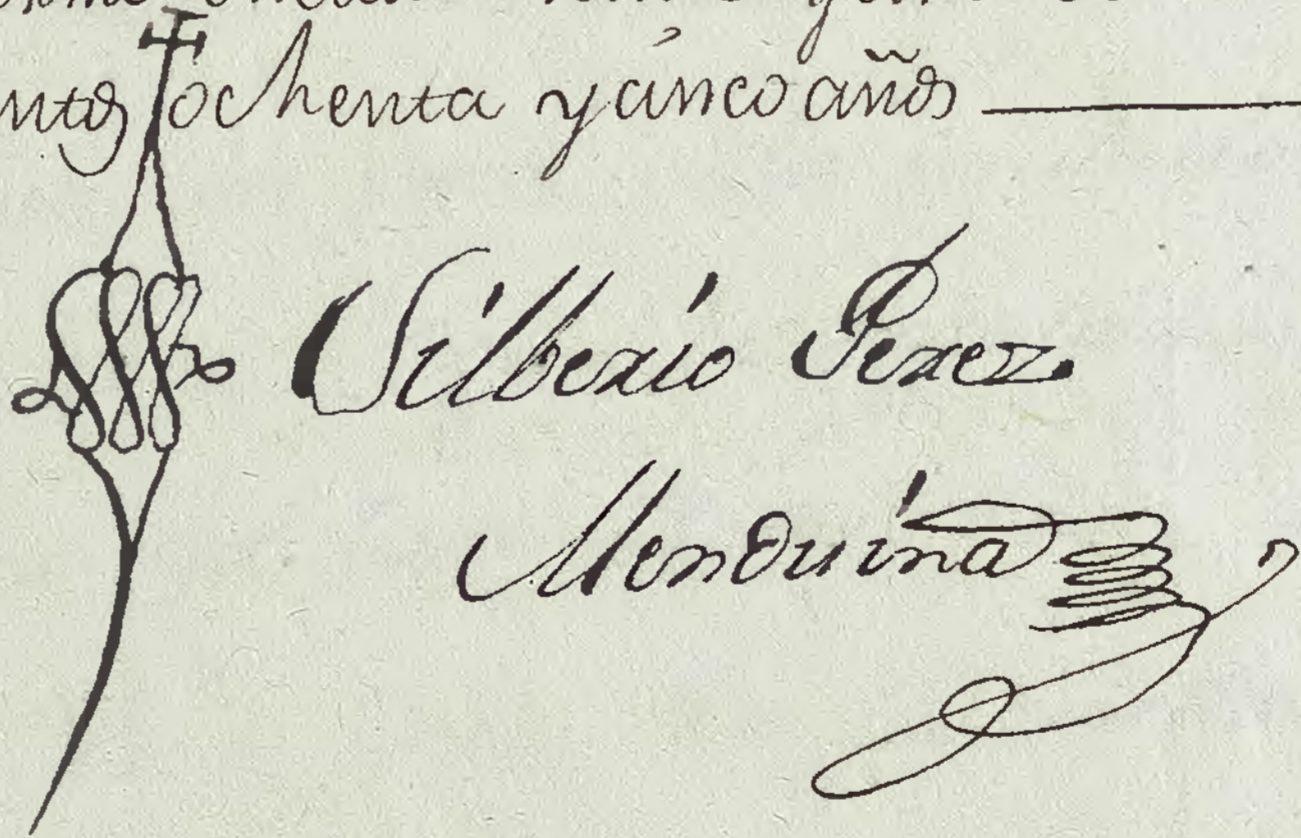 ntos ochenta y cinco años
Silberio Perez
Menduina